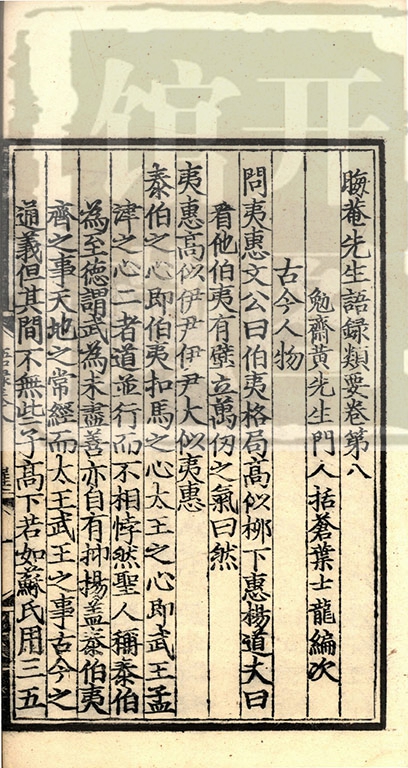 晦菴先生語録類要卷第八
勉齋黄先生門人括蒼葉士龍編次
古今人物
問夷惠文公曰伯夷格局高似柳下惠楊道夫曰
看他伯夷有壁立萬仞之氣曰然
夷惠高似伊尹伊尹大似夷惠
泰伯之心即伯夷扣馬之心太王之心即武王孟
津之心二者道並行而不相悖然聖人稱泰伯
為至德謂武為未盡善亦自有抑揚盖泰伯夷
齊之事天地之常經而太王武王之事古今之
通義但其間不無些子高下若如蘇氏用三五